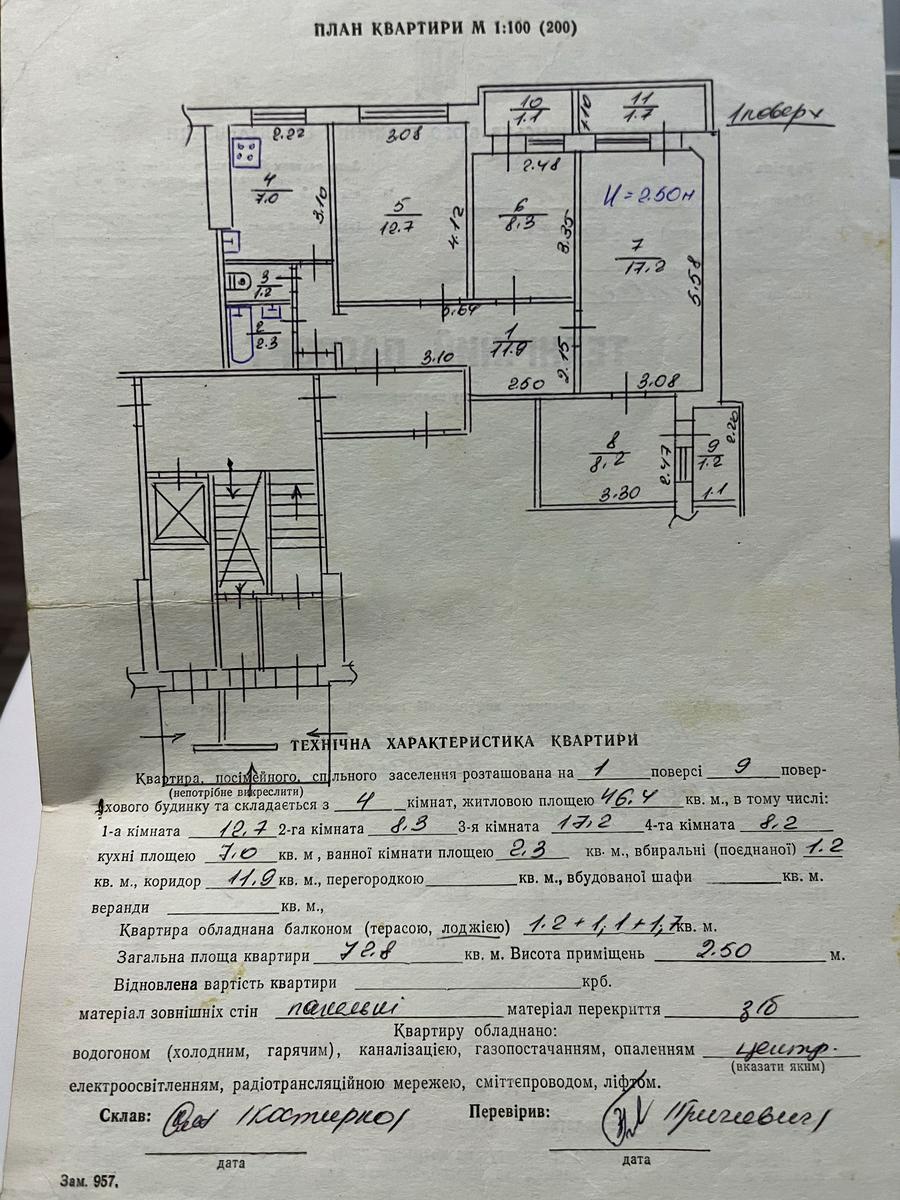 ПЛАН КВАРТИРИ М 1:100 (200)
1поверх
10
1.1
1.10
11
1.7
2.22
3.08
2.48
4
7.0
3.10
5
12.7
4.12
6
8.3
3.35
H=2.50м
7
17.2
5.58
3
1.2
2
2.3
5.64
1
11.9
2.15
3.10
2.50
3.08
8
8.2
2.47
9
1.2
2.20
3.30
1.1
ТЕХНІЧНА ХАРАКТЕРИСТИКА КВАРТИРИ
Квартира, посімейного, спільного заселення розташована на 1 поверсі 9 повер-
(непотрібне викреслити)
хового будинку та складається з 4 кімнат, житловою площею 46.4 кв. м., в тому числі:
1-а кімната 12.7 2-га кімната 8.3 3-я кімната 17.2 4-та кімната 8.2
кухні площею 7.0 кв. м, ванної кімнати площею 2.3 кв. м., вбиральні (поєднаної) 1.2
кв. м., коридор 11.9 кв. м., перегородкою кв. м., вбудованої шафи кв. м.
веранди кв. м.,
Квартира обладнана балконом (терасою, лоджією) 1.2+1,1+1,7 кв. м.
Загальна площа квартири 72.8 кв. м. Висота приміщень 2.50 м.
Відновлена вартість квартири крб.
матеріал зовнішніх стін панельні матеріал перекриття з/б
Квартиру обладнано:
водогоном (холодним, гарячим), каналізацією, газопостачанням, опаленням центр.
(вказати яким)
електроосвітленням, радіотрансляційною мережею, сміттєпроводом, ліфтом.
Склав: Перевірив:
дата дата
Зам. 957.